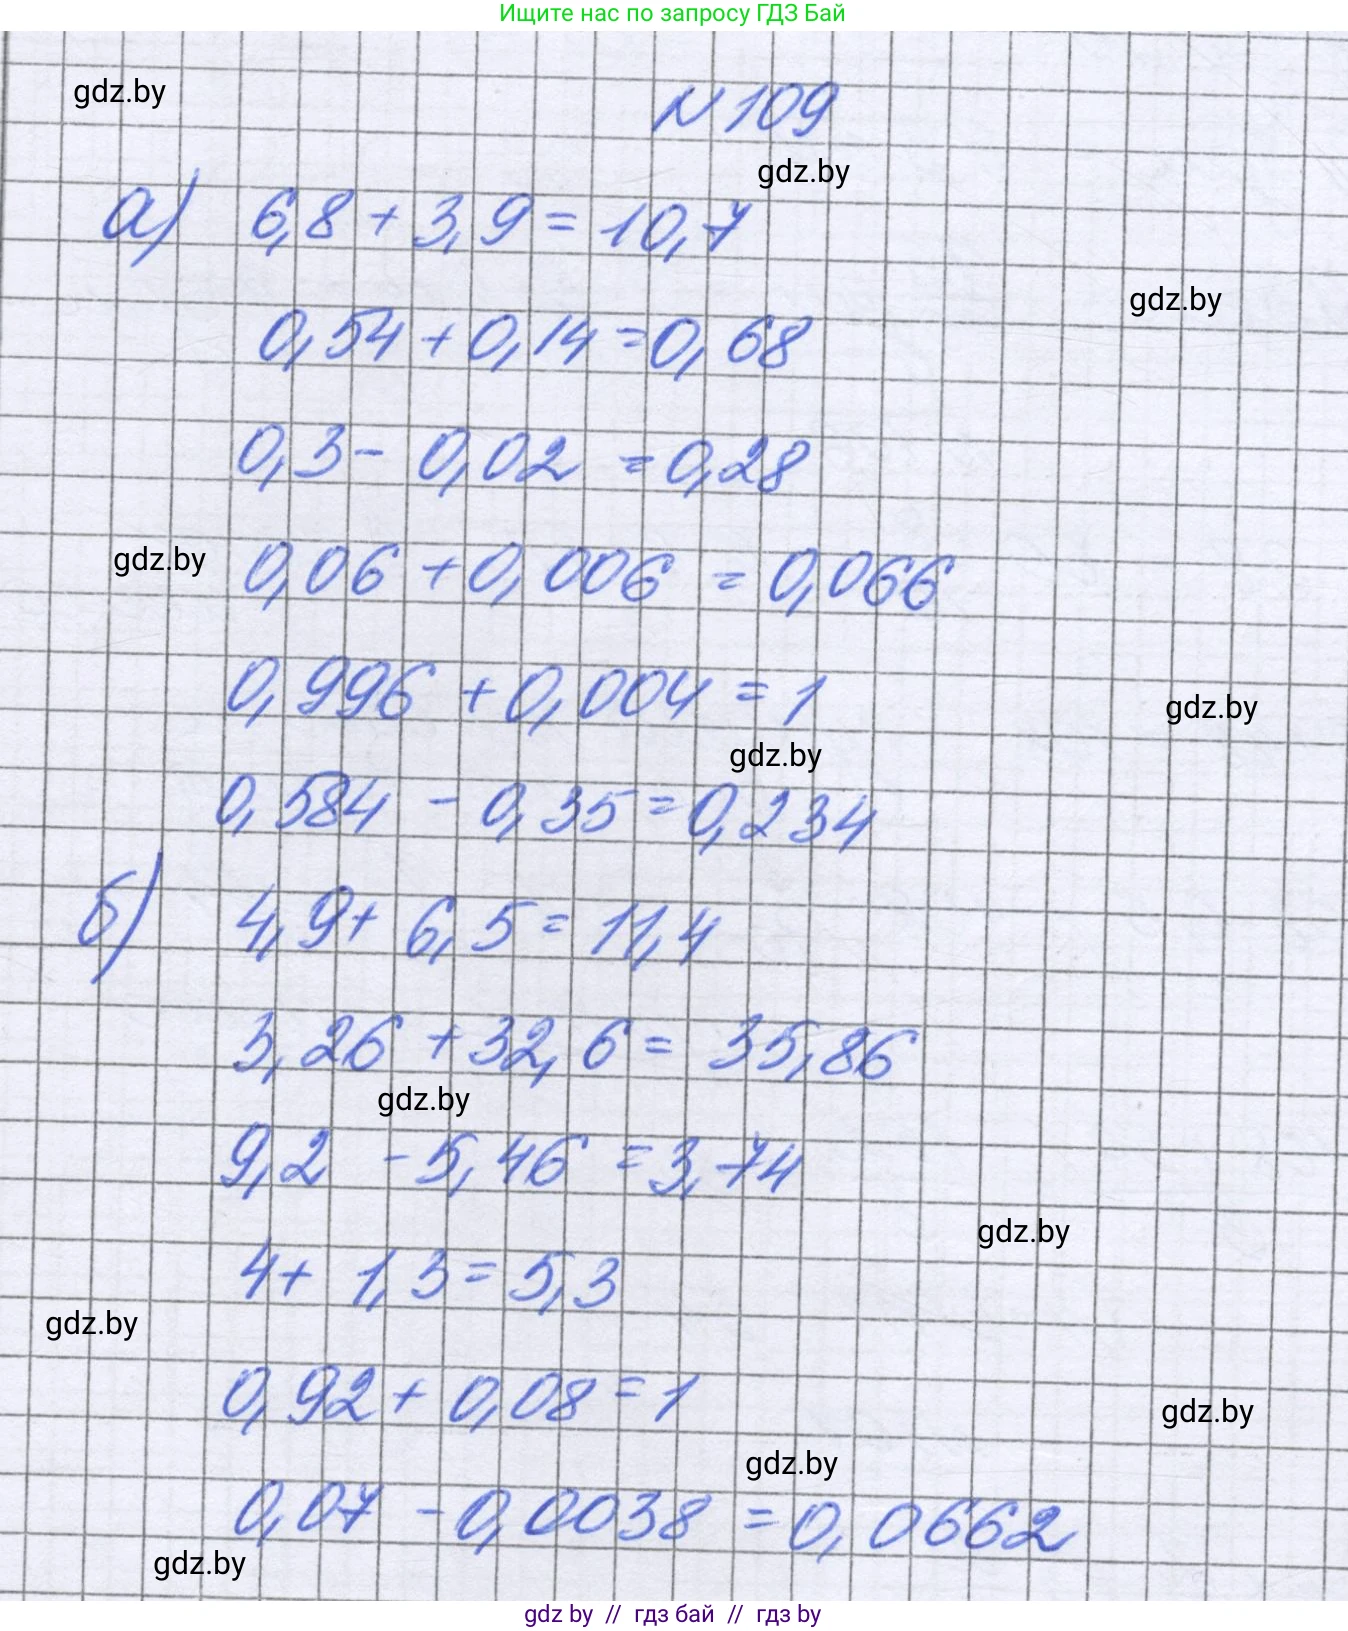 Ищите нас по запросу ГДЗ Бай
gdz.by
N 109
gdz.by
а) 6,8 + 3,9 = 10,7
gdz.by
0,54 + 0,14 = 0,68
0,3 - 0,02 = 0,28
gdz.by
0,06 + 0,006 = 0,066
0,996 + 0,004 = 1
gdz.by
gdz.by
0,584 - 0,35 = 0,234
б) 4,9 + 6,5 = 11,4
3,26 + 32,6 = 35,86
gdz.by
9,2 - 5,46 = 3,74
gdz.by
4 + 1,3 = 5,3
gdz.by
0,92 + 0,08 = 1
gdz.by
gdz.by
0,07 - 0,0038 = 0,0662
gdz.by
gdz by // гдз бай // гдз by